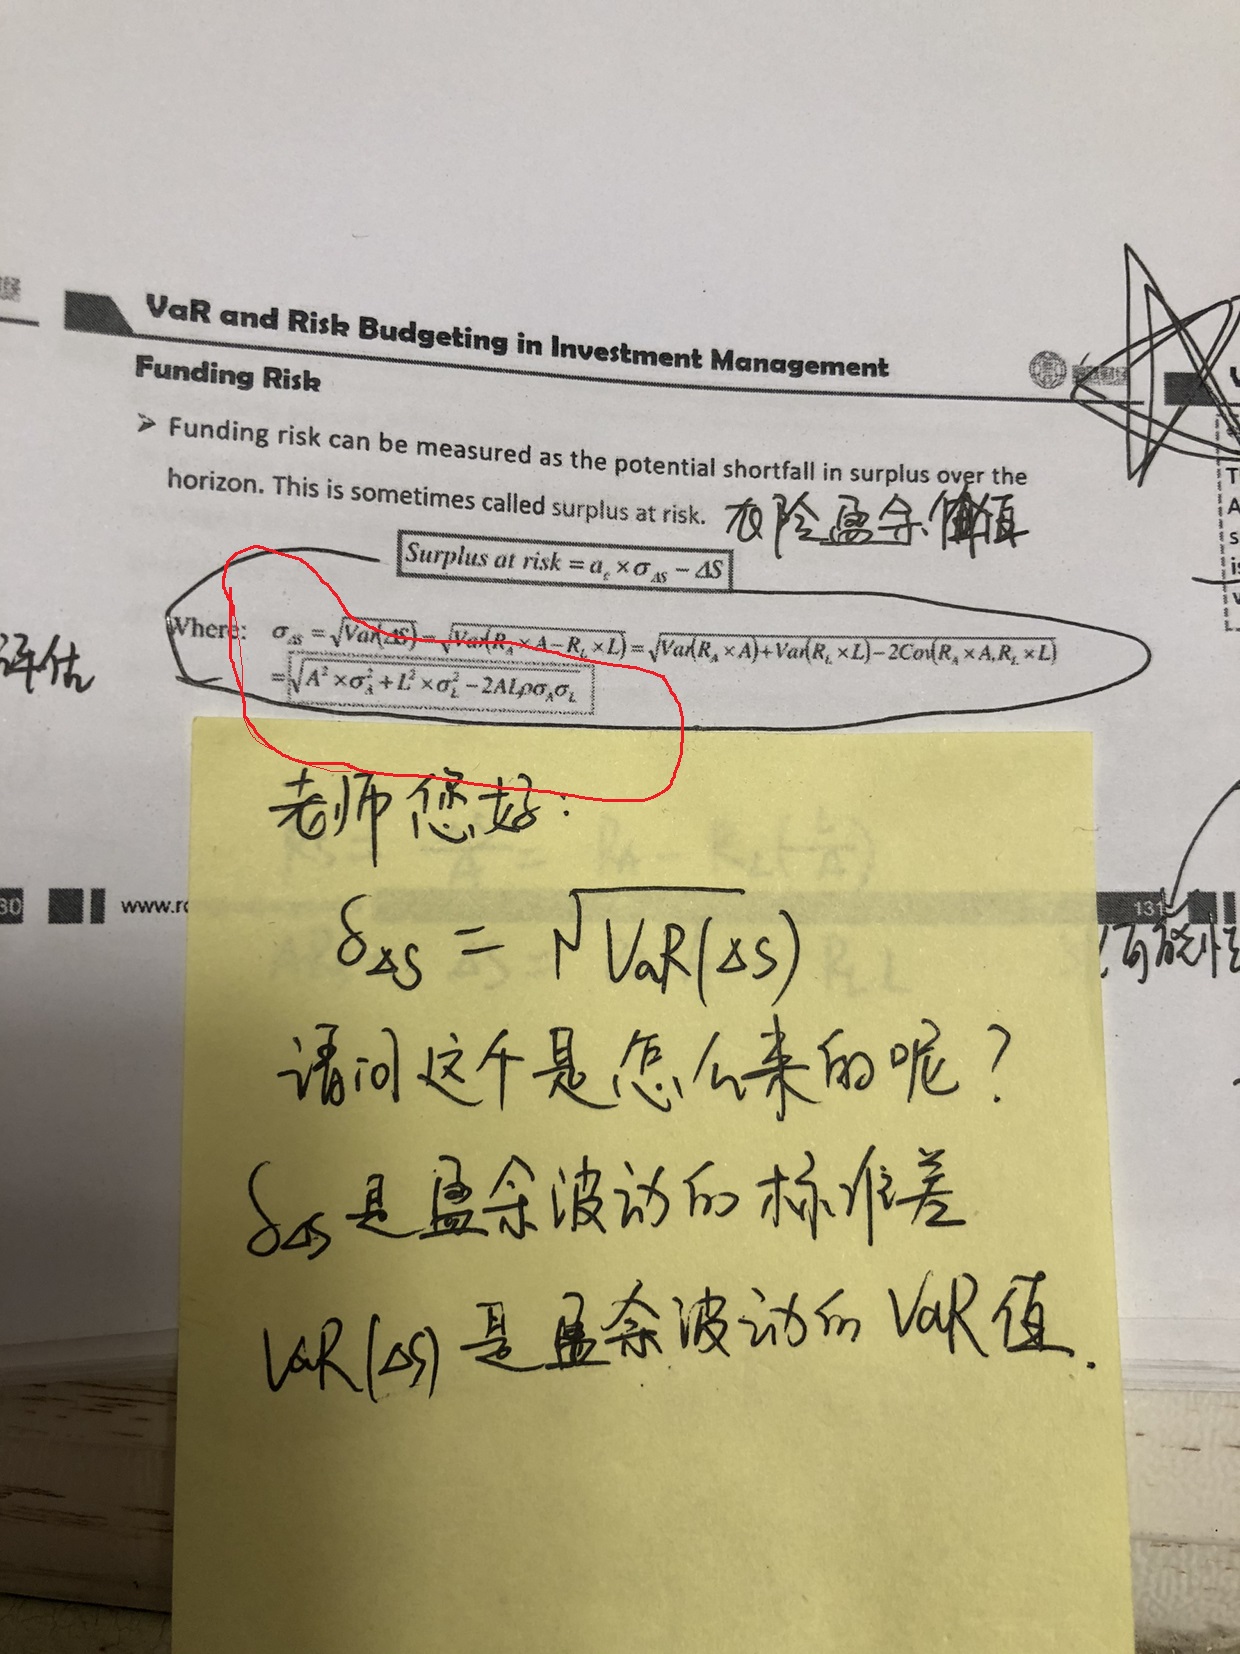 VaR and Risk Budgeting in Investment Management
Funding Risk
➢ Funding risk can be measured as the potential shortfall in surplus over the
horizon. This is sometimes called surplus at risk. 在险盈余值
Surplus at risk = a_c × σ_ΔS − ΔS
Where: σ_ΔS = √Var(ΔS) = √Var(R_A × A − R_L × L) = √Var(R_A × A) + Var(R_L × L) − 2Cov(R_A × A, R_L × L)
= √A² × σ²_A + L² × σ²_L − 2ALρσ_Aσ_L
评估
老师您好:
δ_ΔS = √VaR(ΔS)
请问这个是怎么来的呢?
δ_ΔS 是盈余波动的标准差
VaR(ΔS) 是盈余波动的 VaR 值.
30
www.r
131